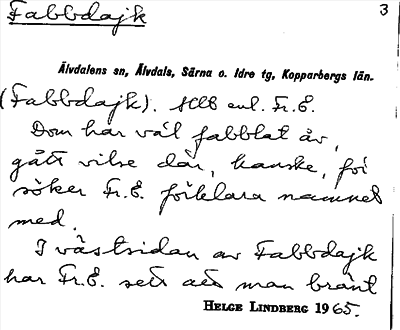 Fabbdajk
3
Älvdalens sn, Älvdals, Särna o. Idre tg, Kopparbergs län.
(Fabbdajk). enl. Fr.E.
Dom har väl fabblat åv,
gått vilse där, kanske, för
söker Fr.E. förklara namnet
med.
I västsidan av Fabbdajk
har Fr.E. sett att man bränt
HELGE LINDBERG 1965.